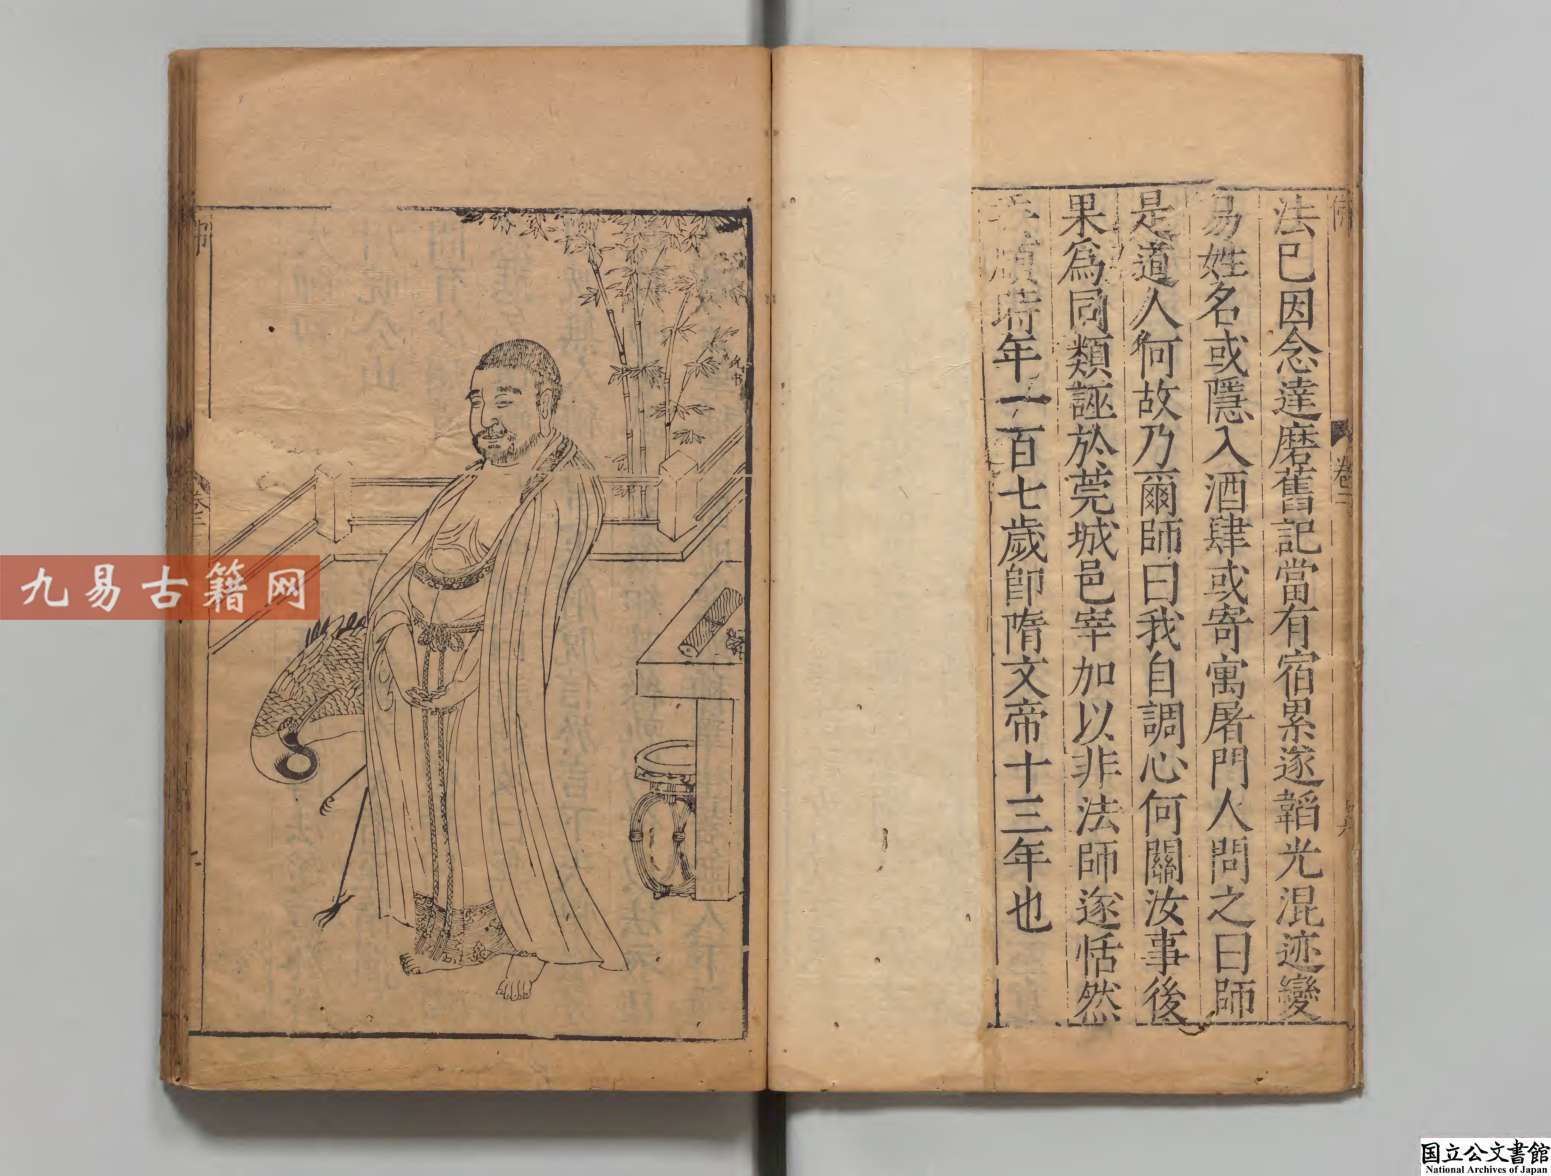 法已因念達磨舊記當有宿累遂韜光混迹變
易姓名或隱入酒肆或寄寓屠門人問之曰師
是道人何故乃爾師曰我自調心何關汝事後
果爲同類誣於莞城邑宰加以非法師遂恬然
委順時年一百七歲卽隋文帝十三年也
卷二
九易古籍网
国立公文書館
National Archives of Japan